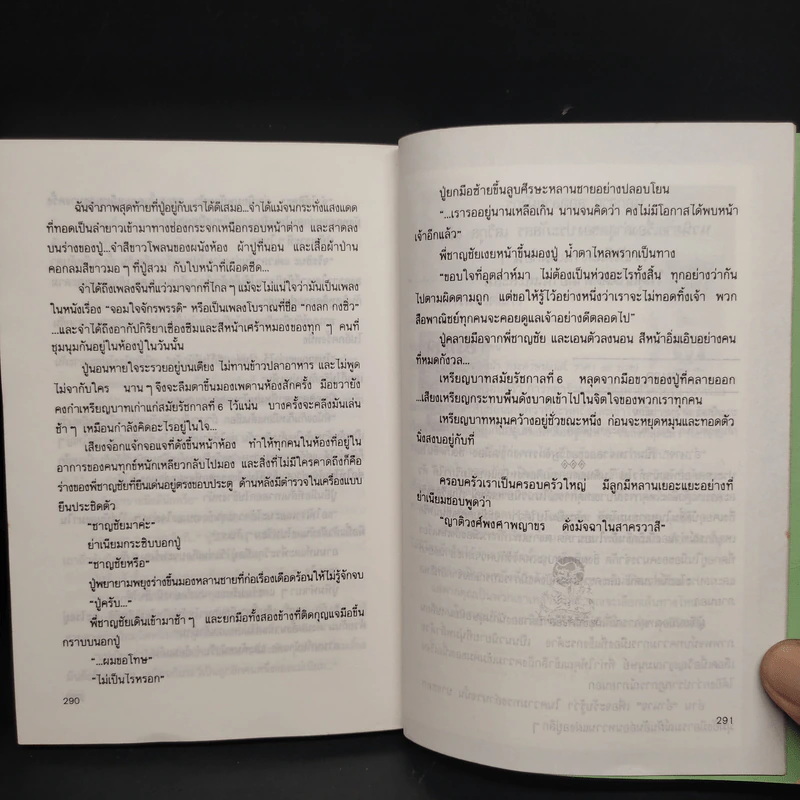 ฉันจำภาพสุดท้ายที่ปู่อยู่กับเราได้ดีเสมอ...จำได้แม้จนกระทั่งแสงแดด
ที่ทอดเป็นลำยาวเข้ามาทางช่องกระจกเหนือกรอบหน้าต่าง และสาดลง
บนร่างของปู่...จำสีขาวโพลนของผนังห้อง ผ้าปูที่นอน และเสื้อผ้าป่าน
คอกลมสีขาวมอ ๆ ที่ปู่สวม กับใบหน้าที่เผือดซีด...
จำได้ถึงเพลงจีนที่แว่วมาจากที่ไกล ๆ แม้จะไม่แน่ใจว่ามันเป็นเพลง
ในหนังเรื่อง “จอมใจจักรพรรดิ” หรือเป็นเพลงโบราณที่ชื่อ “กงลก กงชิ่ว”
...และจำได้ถึงอากัปกิริยาเซื่องซึมและสีหน้าเศร้าหมองของทุก ๆ คนที่
ชุมนุมกันอยู่ในห้องปู่ในวันนั้น
ปู่นอนหายใจระรวยอยู่บนเตียง ไม่ทานข้าวปลาอาหาร และไม่พูด
ไม่จากับใคร นาน ๆ จึงจะลืมตาขึ้นมองเพดานห้องสักครั้ง มือขวายัง
คงกำเหรียญบาทเก่าแก่สมัยรัชกาลที่ 6 ไว้แน่น บางครั้งจะคลึงมันเล่น
ช้า ๆ เหมือนกำลังคิดอะไรอยู่ในใจ...
เสียงจ้อกแจ้กจอแจที่ดังขึ้นหน้าห้อง ทำให้ทุกคนในห้องที่อยู่ใน
อาการของคนทุกข์หนักเหลียวกลับไปมอง และสิ่งที่ไม่มีใครคาดถึงก็คือ
ร่างของพี่ชาญชัยที่ยืนเด่นอยู่ตรงขอบประตู ด้านหลังมีตำรวจในเครื่องแบบ
ยืนประชิดตัว
“ชาญชัยมาค่ะ”
ย่าเนียมกระซิบบอกปู่
“ชาญชัยหรือ”
ปู่พยายามพยุงร่างขึ้นมองหลานชายที่ก่อเรื่องเดือดร้อนให้ไม่รู้จักจบ
“ปู่ครับ...”
พี่ชาญชัยเดินเข้ามาช้า ๆ และยกมือทั้งสองข้างที่ติดกุญแจมือขึ้น
กราบบนอกปู่
“...ผมขอโทษ”
“ไม่เป็นไรหรอก”
290
ปู่ยกมือซ้ายขึ้นลูบศีรษะหลานชายอย่างปลอบโยน
“...เรารออยู่นานเหลือเกิน นานจนคิดว่า คงไม่มีโอกาสได้พบหน้า
เจ้าอีกแล้ว”
พี่ชาญชัยเงยหน้าขึ้นมองปู่ น้ำตาไหลพรากเป็นทาง
“ขอบใจที่อุตส่าห์มา ไม่ต้องเป็นห่วงอะไรทั้งสิ้น ทุกอย่างว่ากัน
ไปตามผิดตามถูก แต่ขอให้รู้ไว้อย่างหนึ่งว่าเราจะไม่ทอดทิ้งเจ้า พวก
สือพาณิชย์ทุกคนจะคอยดูแลเจ้าอย่างดีตลอดไป”
ปู่คลายมือจากพี่ชาญชัย และเอนตัวลงนอน สีหน้าอิ่มเอิบอย่างคน
ที่หมดกังวล...
เหรียญบาทสมัยรัชกาลที่ 6 หลุดจากมือขวาของปู่ที่คลายออก
...เสียงเหรียญกระทบพื้นดังบาดเข้าไปในจิตใจของพวกเราทุกคน
เหรียญบาทหมุนคว้างอยู่ชั่วขณะหนึ่ง ก่อนจะหยุดหมุนและทอดตัว
นิ่งสงบอยู่กับที่
ครอบครัวเราเป็นครอบครัวใหญ่ มีลูกมีหลานเยอะแยะอย่างที่
ย่าเนียมชอบพูดว่า
“ญาติวงศ์พงศาพญาขร ดั่งมัจฉาในสาครวาสี”
291